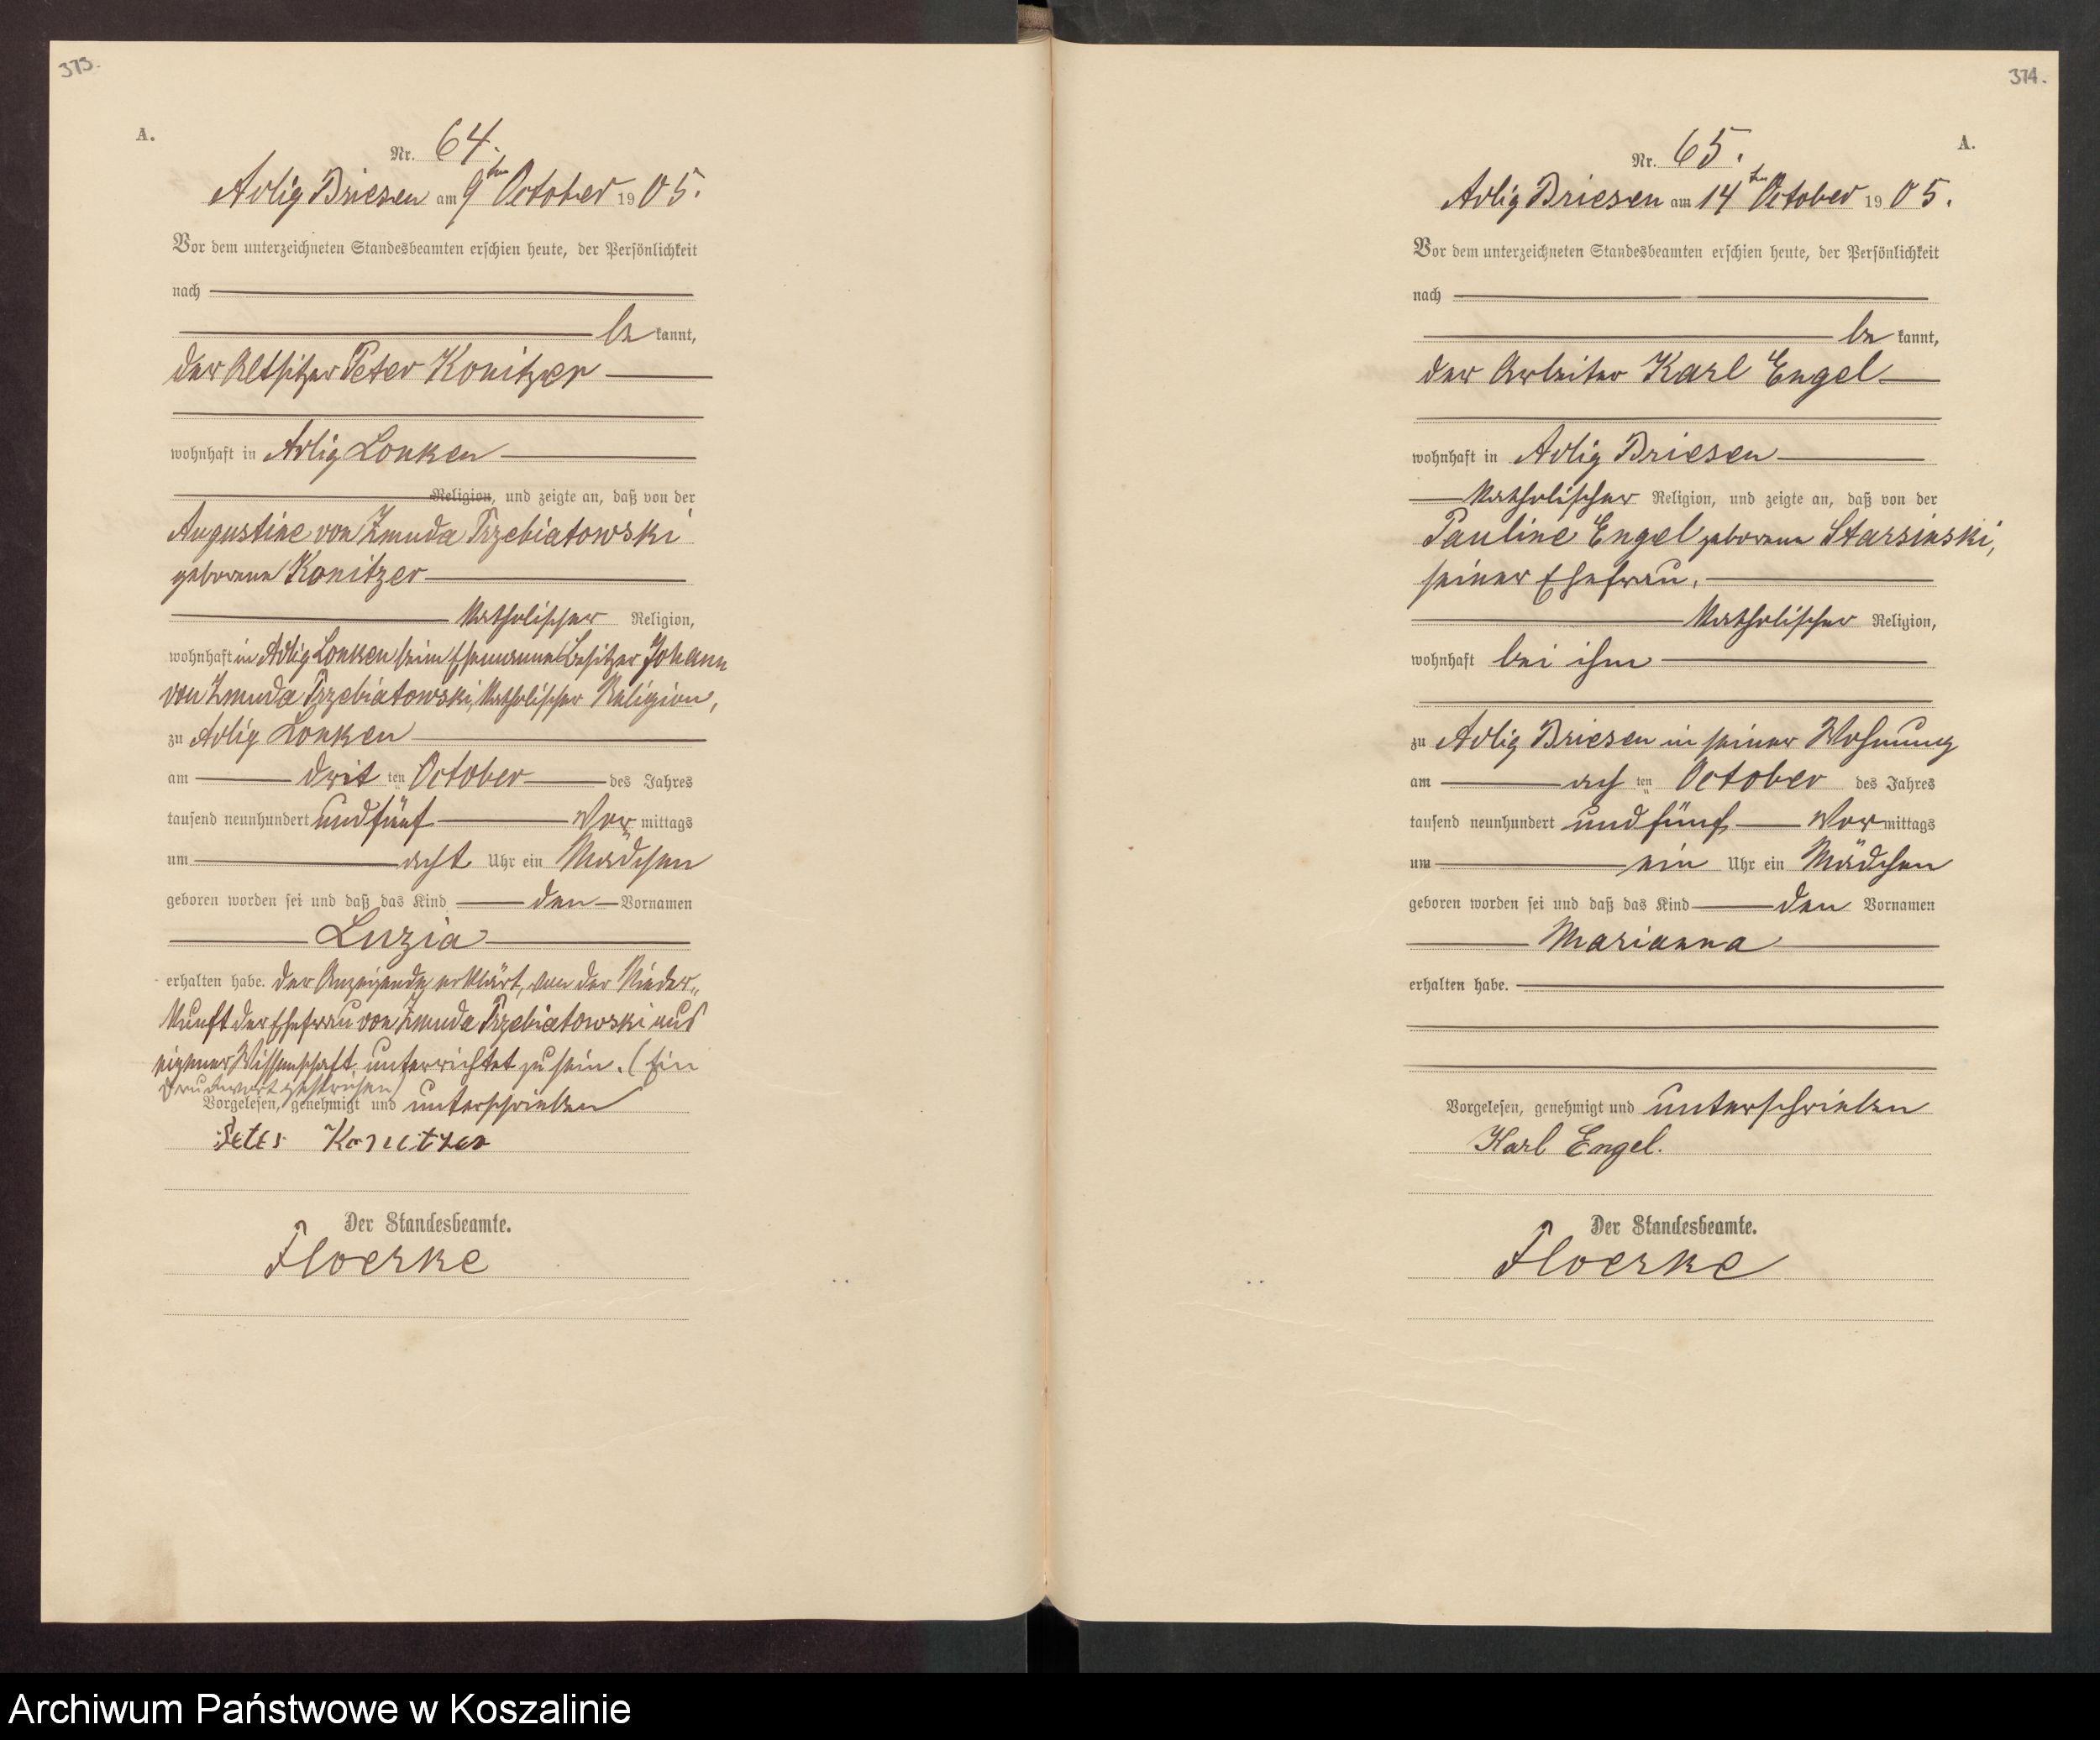 373.
A.
Nr. 64.
Adlig Briesen am 9ten October 1905.
Vor dem unterzeichneten Standesbeamten erschien heute, der Persönlichkeit
nach
be kannt,
der Altsitzer Peter Konitzer
wohnhaft in Adlig Lonken
Religion, und zeigte an, daß von der
Augustine von Zmuda Trzebiatowski
geborene Konitzer
katholischer Religion,
wohnhaft in Adlig Lonken beim Ehemanne Besitzer Johann
von Zmuda Trzebiatowski, katholischer Religion,
zu Adlig Lonken
am drit ten October des Jahres
tausend neunhundert und fünf Vor mittags
um acht Uhr ein Mädchen
geboren worden sei und daß das Kind den Vornamen
Luzia
erhalten habe. Der Anzeigende erklärt, von der Nieder„
kunft der Ehefrau von Zmuda Trzebiatowski aus
eigener Wissenschaft unterrichtet zu sein. (Ein
Druckwort gestrichen)
Vorgelesen, genehmigt und unterschrieben
Peter Konitzer
Der Standesbeamte.
Floerke
374.
A.
Nr. 65.
Adlig Briesen am 14ten October 1905.
Vor dem unterzeichneten Standesbeamten erschien heute, der Persönlichkeit
nach
be kannt,
der Arbeiter Karl Engel
wohnhaft in Adlig Briesen
katholischer Religion, und zeigte an, daß von der
Pauline Engel geborene Starsinski,
seiner Ehefrau,
katholischer Religion,
wohnhaft bei ihm
zu Adlig Briesen in seiner Wohnung
am ach ten October des Jahres
tausend neunhundert und fünf Vor mittags
um ein Uhr ein Mädchen
geboren worden sei und daß das Kind den Vornamen
Marianna
erhalten habe.
Vorgelesen, genehmigt und unterschrieben
Karl Engel.
Der Standesbeamte.
Floerke
Archiwum Państwowe w Koszalinie